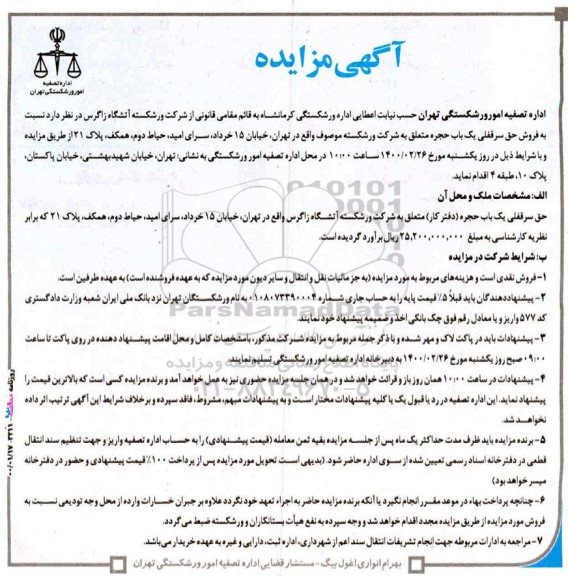 آگهی مزایده
اداره تصفیه
امور ورشکستگی تهران
اداره تصفیه امور ورشکستگی تهران حسب نیابت اعطایی اداره ورشکستگی کرمانشاه به قائم مقامی قانونی از شرکت ورشکسته آتشگاه زاگرس در نظر دارد نسبت
به فروش حق سرقفلی یک باب حجره متعلق به شرکت ورشکسته موصوف واقع در تهران، خیابان ۱۵ خرداد، سرای امید، حیاط دوم، همکف، پلاک ۲۱ از طریق مزایده
و با شرایط ذیل در روز یکشنبه مورخ ۱۴۰۰/۰۲/۲۶ ساعت ۱۰:۰۰ در محل اداره تصفیه امور ورشکستگی به نشانی: تهران، خیابان شهید بهشتی، خیابان پاکستان،
پلاک ۱۰، طبقه ۴ اقدام نماید.
الف: مشخصات ملک و محل آن
حق سرقفلی یک باب حجره (دفتر کار) متعلق به شرکت ورشکسته آتشگاه زاگرس واقع در تهران، خیابان ۱۵ خرداد، سرای امید، حیاط دوم، همکف، پلاک ۲۱ که برابر
نظریه کارشناسی به مبلغ ۲۵,۲۰۰,۰۰۰,۰۰۰ ریال برآورد گردیده است.
ب: شرایط شرکت در مزایده
۱- فروش نقدی است و هزینه‌های مربوط به مورد مزایده (به جز مالیات نقل و انتقال و سایر دیون مورد مزایده که به عهده فروشنده است) به عهده طرفین است.
۲- پیشنهاددهندگان باید قبلاً ۵٪ قیمت پایه را به حساب جاری شماره ۰۱۰۸۰۷۳۳۹۰۰۰۴ به نام ورشکستگان تهران نزد بانک ملی ایران شعبه وزارت دادگستری
کد ۵۷۷ واریز و یا معادل رقم فوق چک بانکی اخذ و ضمیمه پیشنهاد خود نمایند.
۳- پیشنهادات باید در پاکت لاک و مهر شده و با ذکر جمله مربوط به مزایده شرکت مذکور، با مشخصات کامل و محل اقامت پیشنهاد دهنده در روی پاکت تا ساعت
۰۹:۰۰ صبح روز یکشنبه مورخ ۱۴۰۰/۰۲/۲۶ به دبیرخانه اداره تصفیه امور ورشکستگی تسلیم نمایند.
۴- پیشنهادات در ساعت ۱۰:۰۰ همان روز باز و قرائت خواهد شد و در همان جلسه مزایده حضوری نیز به عمل خواهد آمد و برنده مزایده کسی است که بالاترین قیمت را
پیشنهاد نماید. این اداره تصفیه در رد یا قبول یک یا کلیه پیشنهادات مختار است و به پیشنهادات مبهم، مشروط، فاقد سپرده و برخلاف شرایط این آگهی ترتیب اثر داده
نخواهد شد.
۵- برنده مزایده باید ظرف مدت حداکثر یک ماه پس از جلسه مزایده بقیه ثمن معامله (قیمت پیشنهادی) را به حساب اداره تصفیه واریز و جهت تنظیم سند انتقال
قطعی در دفترخانه اسناد رسمی تعیین شده از سوی اداره حاضر شود. (بدیهی است تحویل مورد مزایده پس از پرداخت ۱۰۰٪ قیمت پیشنهادی و حضور در دفترخانه
میسر خواهد بود)
۶- چنانچه پرداخت بهاء در موعد مقرر انجام نگیرد یا آنکه برنده مزایده حاضر به اجراء تعهد خود نگردد علاوه بر جبران خسارات وارده از محل وجه تودیعی نسبت به
فروش مورد مزایده از طریق مزایده مجدد اقدام خواهد شد و وجه سپرده به نفع هیأت بستانکاران و ورشکسته ضبط می‌گردد.
۷- مراجعه به ادارات مربوطه جهت انجام تشریفات انتقال سند اعم از شهرداری، اداره ثبت، دارایی و غیره به عهده خریدار می‌باشد.
بهرام انواری اغول بیگ - مستشار قضایی اداره تصفیه امور ورشکستگی تهران
ParsNamadData
۰۲۱-۸۸۳۴۹۶۷۰-۵